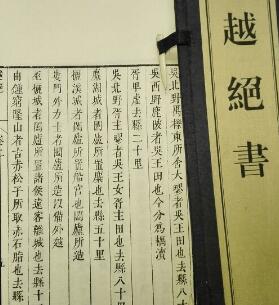 越絕書
吳北野禺櫟東所舍大疁者吳王田也去縣八十里
吳西野鹿陂者吳王田也今分為耦瀆
胥卑虛去縣二十里
吳北野胥主疁者吳王女胥主田也去縣八十里
麋湖城者闔廬所置麋也去縣五十里
欐溪城者闔廬所置船宮也闔廬所造
婁門外力士者闔廬所造以備外越
巫欐城者闔廬所置諸侯遠客離城也去縣十
由鍾窮隆山者古赤松子所取赤石脂也去縣